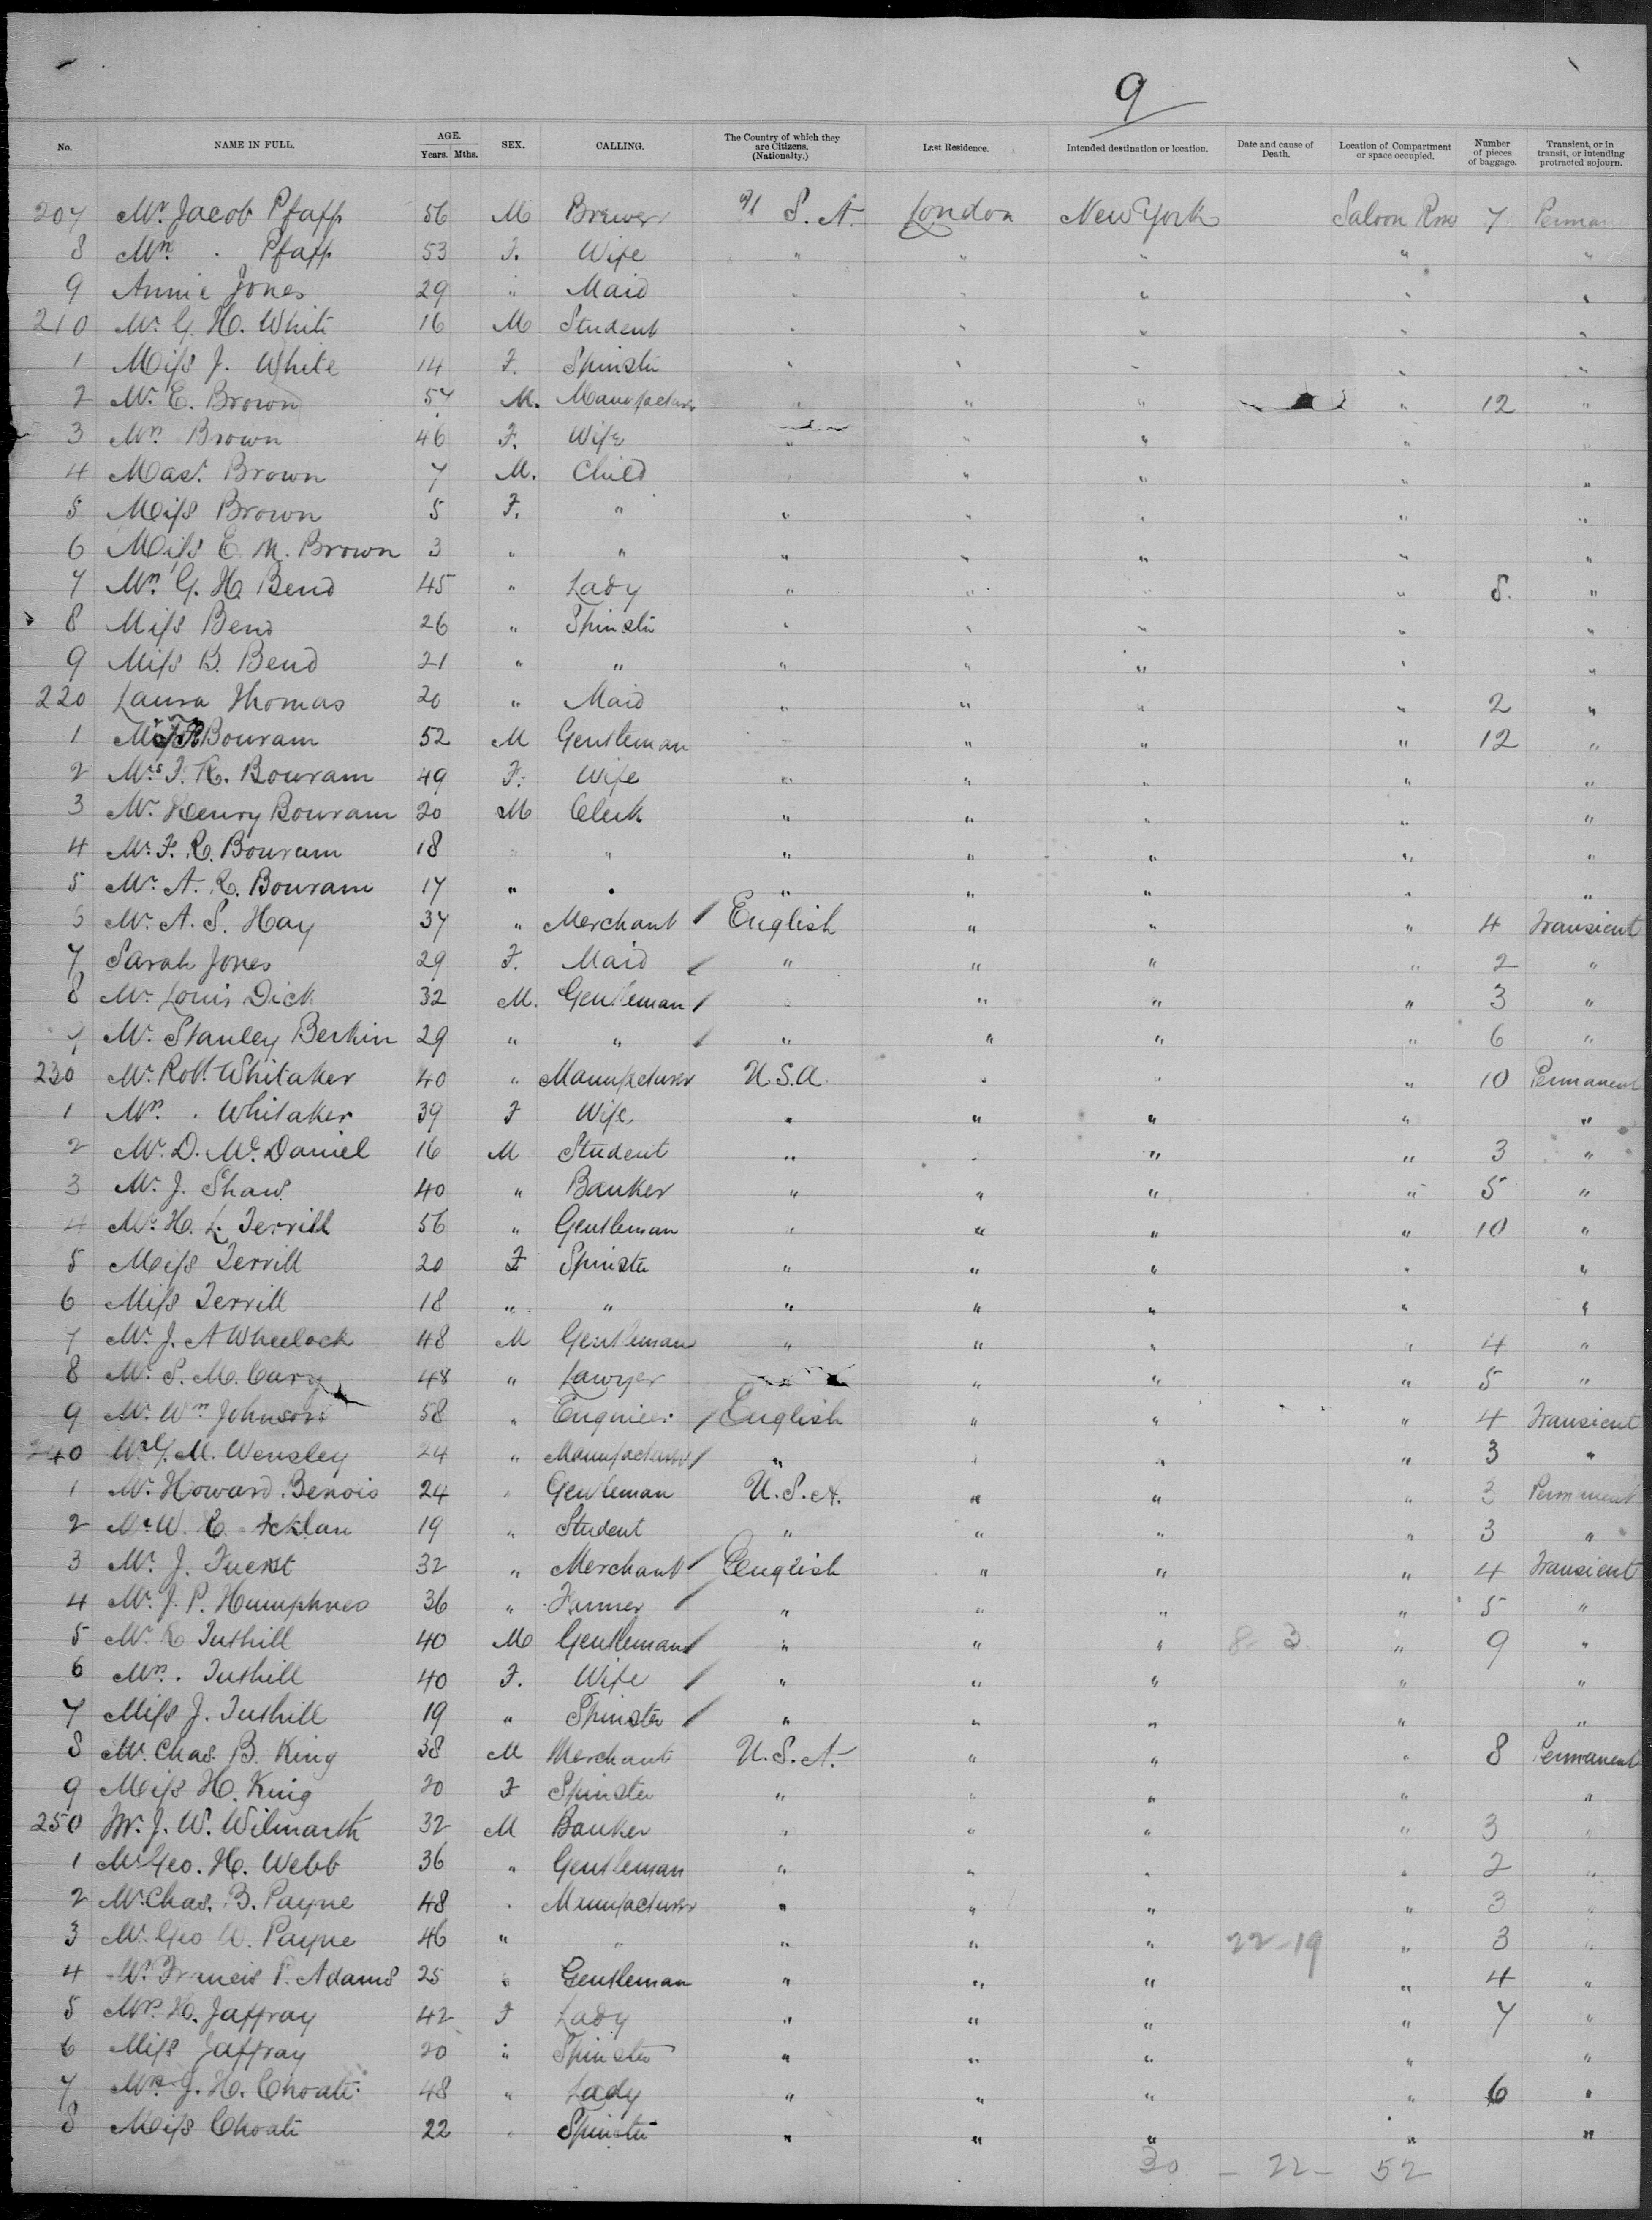 9
No. NAME IN FULL. AGE. Years. Mths. SEX. CALLING. The Country of which they are Citizens. (Nationalty.) Last Residence. Intended destination or location. Date and cause of Death. Location of Compartment or space occupied. Number of pieces of baggage. Transient, or in transit, or intending protracted sojourn.
207 Mr. Jacob Pfaff 56 M Brewer U S. A. London New York Saloon Rms 7 Perman
8 Mrs. Pfaff 53 F. Wife " " " " "
9 Annie Jones 29 " Maid " " " " "
210 Mr. G. H. White 16 M Student " " " " "
1 Miss J. White 14 F. Spinster " " " " "
2 Mr. E. Brown 57 M. Manufacturer " " " " 12 "
3 Mrs Brown 46 F. Wife " " " " "
4 Mast. Brown 7 M. Child " " " "
5 Miss Brown 5 F. " " " " " "
6 Miss E. M. Brown 3 " " " " " " "
7 Mrs G. H. Bend 45 " Lady " " " " 8. "
8 Miss Bend 26 " Spinster " " " " "
9 Miss B. Bend 21 " " " " " " "
220 Laura Thomas 20 " Maid " " " " 2 "
1 Mr F. R. Bouram 52 M Gentleman " " " " 12 "
2 Mrs F. R. Bouram 49 F. Wife " " " " "
3 Mr. Henry Bouram 20 M Clerk " " " " "
4 Mr. F. R. Bouram 18 " " " " " " "
5 Mr. A. R. Bouram 17 " " " " " " "
6 Mr. A. S. Hay 37 " Merchant / English " " " 4 Transient
7 Sarah Jones 29 F. Maid / " " " " 2 "
8 Mr. Louis Dick 32 M. Gentleman / " " " " 3 "
9 Mr. Stanley Berkin 29 " " / " " " " 6 "
230 Mr. Robt. Whitaker 40 " Manufacturer U.S.A. " " " 10 Permanent
1 Mrs. Whitaker 39 F Wife " " " " "
2 Mr. D. Mc. Daniel 16 M Student " " " " 3 "
3 Mr. J. Shaw 40 " Banker " " " " 5 "
4 Mr. H. L. Terrill 56 " Gentleman " " " " 10 "
5 Miss Terrill 20 F Spinster " " " " "
6 Miss Terrill 18 " " " " " " "
7 Mr. J. A Wheelock 48 M Gentleman " " " " 4 "
8 Mr. S. M. Cary 48 " Lawyer " " " 5 "
9 Mr. Wm Johnson 58 " Engineer / English " " " 4 Transient
240 M. Wensley 24 " Manufacturer / " " " " 3 "
1 Mr. Howard Benois 24 " Gentleman U.S.A. " " " 3 Permanent
2 Mr W. 19 " Student " " " " 3 "
3 Mr. J. Fuerst 32 " Merchant / English " " " 4 Transient
4 Mr. J. P. Humphries 36 " Farmer / " " " " 5 "
5 Mr. R Tuthill 40 M Gentleman / " " " 8 - 3 " 9 "
6 Mrs. Tuthill 40 F. Wife / " " " " "
7 Miss J. Tuthill 19 " Spinster / " " " " "
8 Mr. Chas. B. King 38 M Merchant U.S.A. " " " 8 Permanent
9 Miss H. King 20 F Spinster " " " " "
250 Mr. J. W. Wilmarth 32 M Banker " " " " 3 "
1 Mr Geo. H. Webb 36 " Gentleman " " " " 2 "
2 Mr. Chas. B. Payne 48 " Manufacturer " " " " 3 "
3 Mr. Geo W. Payne 46 " " " " " 22-19 " 3 "
4 Mr. Francis P. Adams 25 " Gentleman " " " " 4 "
5 Mrs. H. Jaffray 42 F Lady " " " " 7 "
6 Miss Jaffray 20 " Spinster " " " " "
7 Mrs J. H. Choate 48 " Lady " " " " 6 "
8 Miss Choate 22 " Spinster " " " " "
30 - 22 - 52